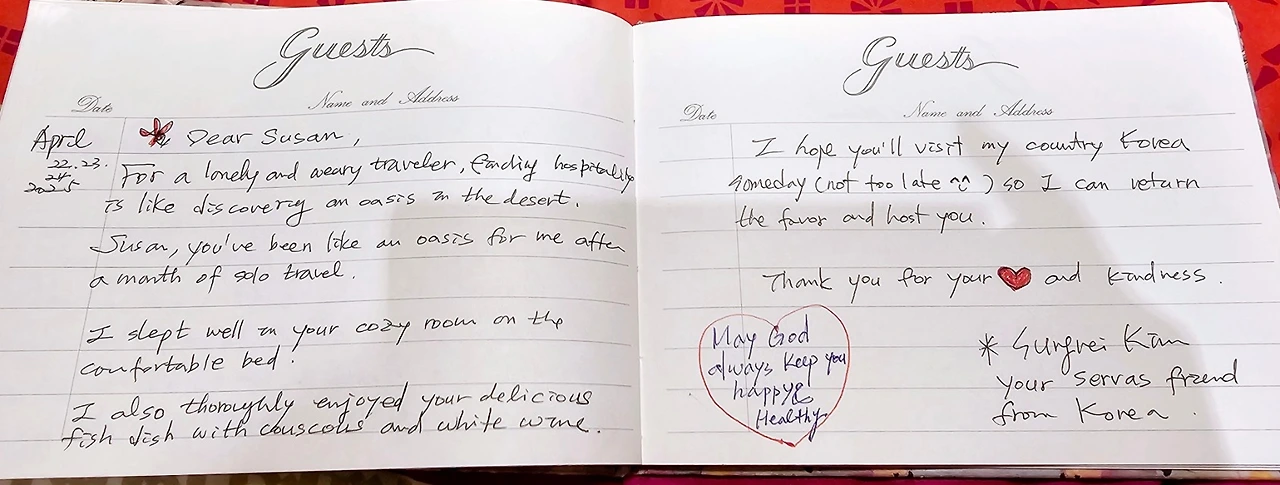 Guests
Date Name and Address
April
22.23.
24.
2025
Dear Susan,
For a lonely and weary traveler, finding hospitality
is like discovering an oasis in the desert.
Susan, you've been like an oasis for me after
a month of solo travel.
I slept well in your cozy room on the
comfortable bed.
I also thoroughly enjoyed your delicious
fish dish with couscous and white wine.
Guests
Date Name and Address
I hope you'll visit my country Korea
someday (not too late ^^) so I can return
the favor and host you.
Thank you for your ❤ and kindness.
May God
always keep you
happy &
Healthy
* Kim
your servas friend
from Korea.